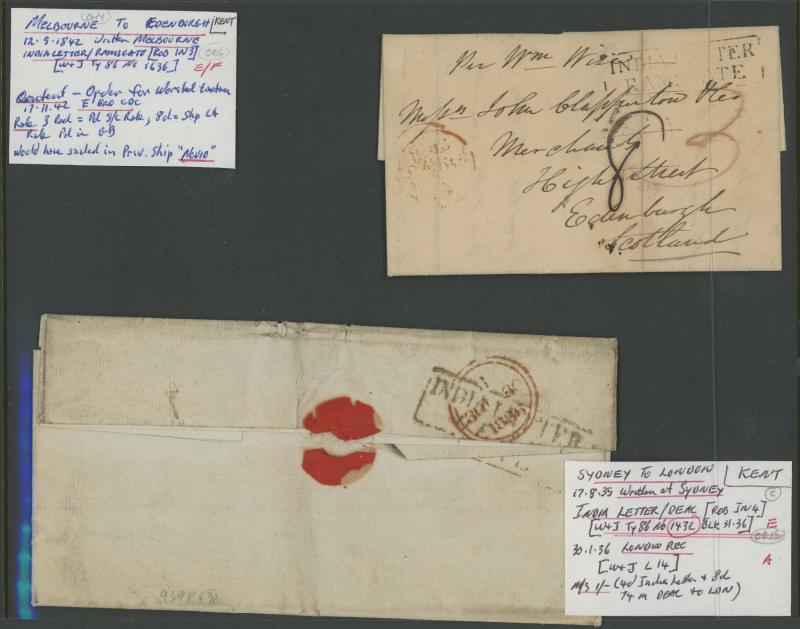 MELBOURNE TO EDENBURGH KENT
12.5.1842 written MELBOURNE
INDIA LETTER/RAMSGATE [ROB IN3]
[W+J Ty 86 No 1636] E/F
Content - Order for Worsted
17.11.42 E
Rate 3 Red = Pd S/L Rate, 8d = Ship Ltr
Rate Pd in GB
Would have sailed in Priv. Ship
Per Wm
INDIA LETTER
RAMSGATE
Messrs John Clapperton
Merchants
High Street
8
3
Edenburgh
Scotland
INDIA LETTER
1836
SYDNEY TO LONDON KENT
17.8.35 Written at SYDNEY
C
INDIA LETTER/DEAL [ROB IN4]
[W+J Ty 86 No 1432 BLK 31.36] E
ORIG
30.1.36 LONDON REC
A
[W+J L14]
M/S 1/- (4d India Letter + 8d
74 m DEAL to LON)